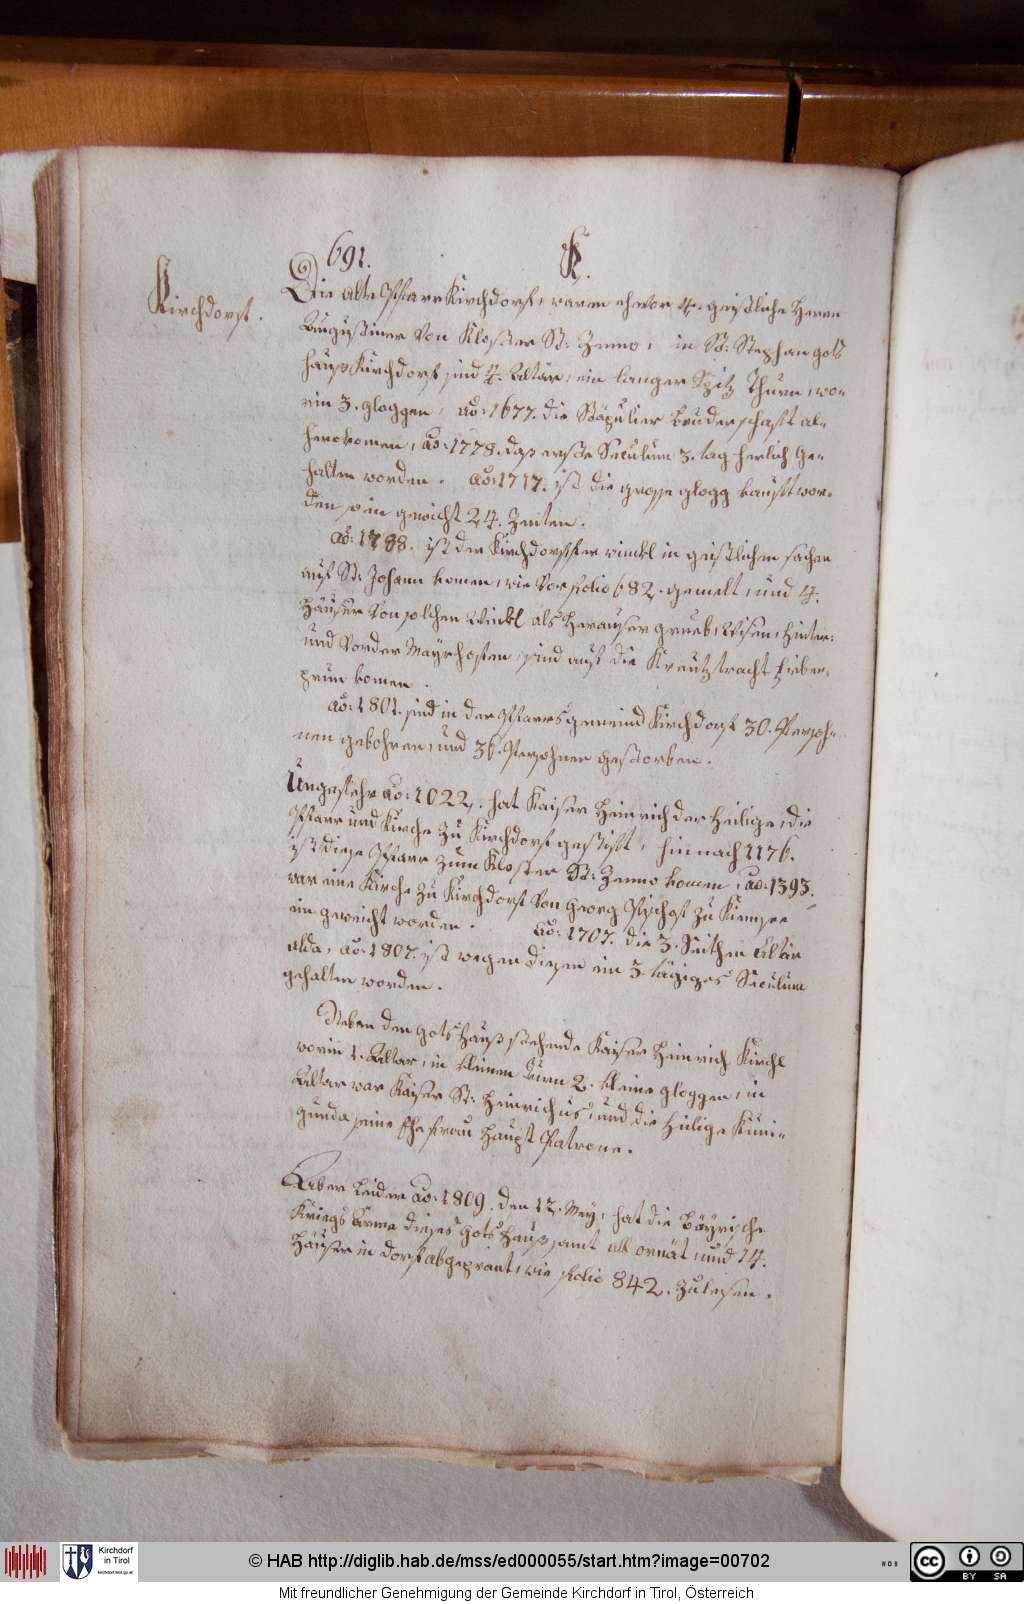 691.
K.
Kirchdorf.
Die alte Pfarr Kirchdorf, waren ehvor 4. geistliche Herrn
Augustiner Von Kloster St: Zenno, in St: Stephan gots
hauß Kirchdorf sind 4. Altär, ein langer Spitz Thurn, wo-
rin 3. gloggen, aõ: 1677. die Scäpulier Bruderschafft al-
hero komen, aõ: 1778. daß erste Seculum 3. tag herlich Ge-
halten worden. aõ: 1717. ist die grosse glogg kaufft wor-
den, so in gewicht 24. Zenten.
aõ: 1788. ist der Kirchdorffer winckl in geistlichen sachen
auf St: Johann komen, wie Vor folio 682. gemelt, und 4.
Häuser Von solchen Winkl als Herauser grueb, Wisen, Hinter:
und Vorder Mayrhofen, sind auf die Kreutztracht Fieber-
prun komen.
aõ: 1801. sind in der Pfarrsgemeind Kirchdorf 30. Persoh-
nen gebohren, und 36. Persohnen gestorben.
Ungefehr aõ: 1022. hat Kaiser Heinrich der Heilige, die
Pfarr und Kirche zu Kirchdorf gestifft, hinnach 1176.
ist diese Pfarr zum Kloster St: Zenno komen, aõ: 1393.
war eine Kirche zu Kirchdorf Von Georg Pischof zu Kiemsee
ein geweicht worden. aõ: 1707. die 3. Seithen Altär
alda, aõ: 1807. ist wegen diesen ein 3. tägiges Seculum
gehalten worden.
Neben den gots Hauß stehende Kaiser Heinrich Kirchl
worin 1. Altar, in kleinen turn 2. kleine gloggen, in
Altar war Kaiser St: Heinrichus, und die Heilige Kuni-
gunda seine Ehe frau Haupt Patrone.
Aber leider aõ: 1809. den 12. May, hat die Bäyrische
Kriegs Arme dieses Gots Hauß samt all ornät, und 14.
Häuser in dorf abgeprant, wie folio 842. zu lesen.
Kirchdorf
in Tirol
kirchdorf.tirol.gv.at
© HAB http://diglib.hab.de/mss/ed000055/start.htm?image=00702
WDB
cc BY SA
Mit freundlicher Genehmigung der Gemeinde Kirchdorf in Tirol, Österreich